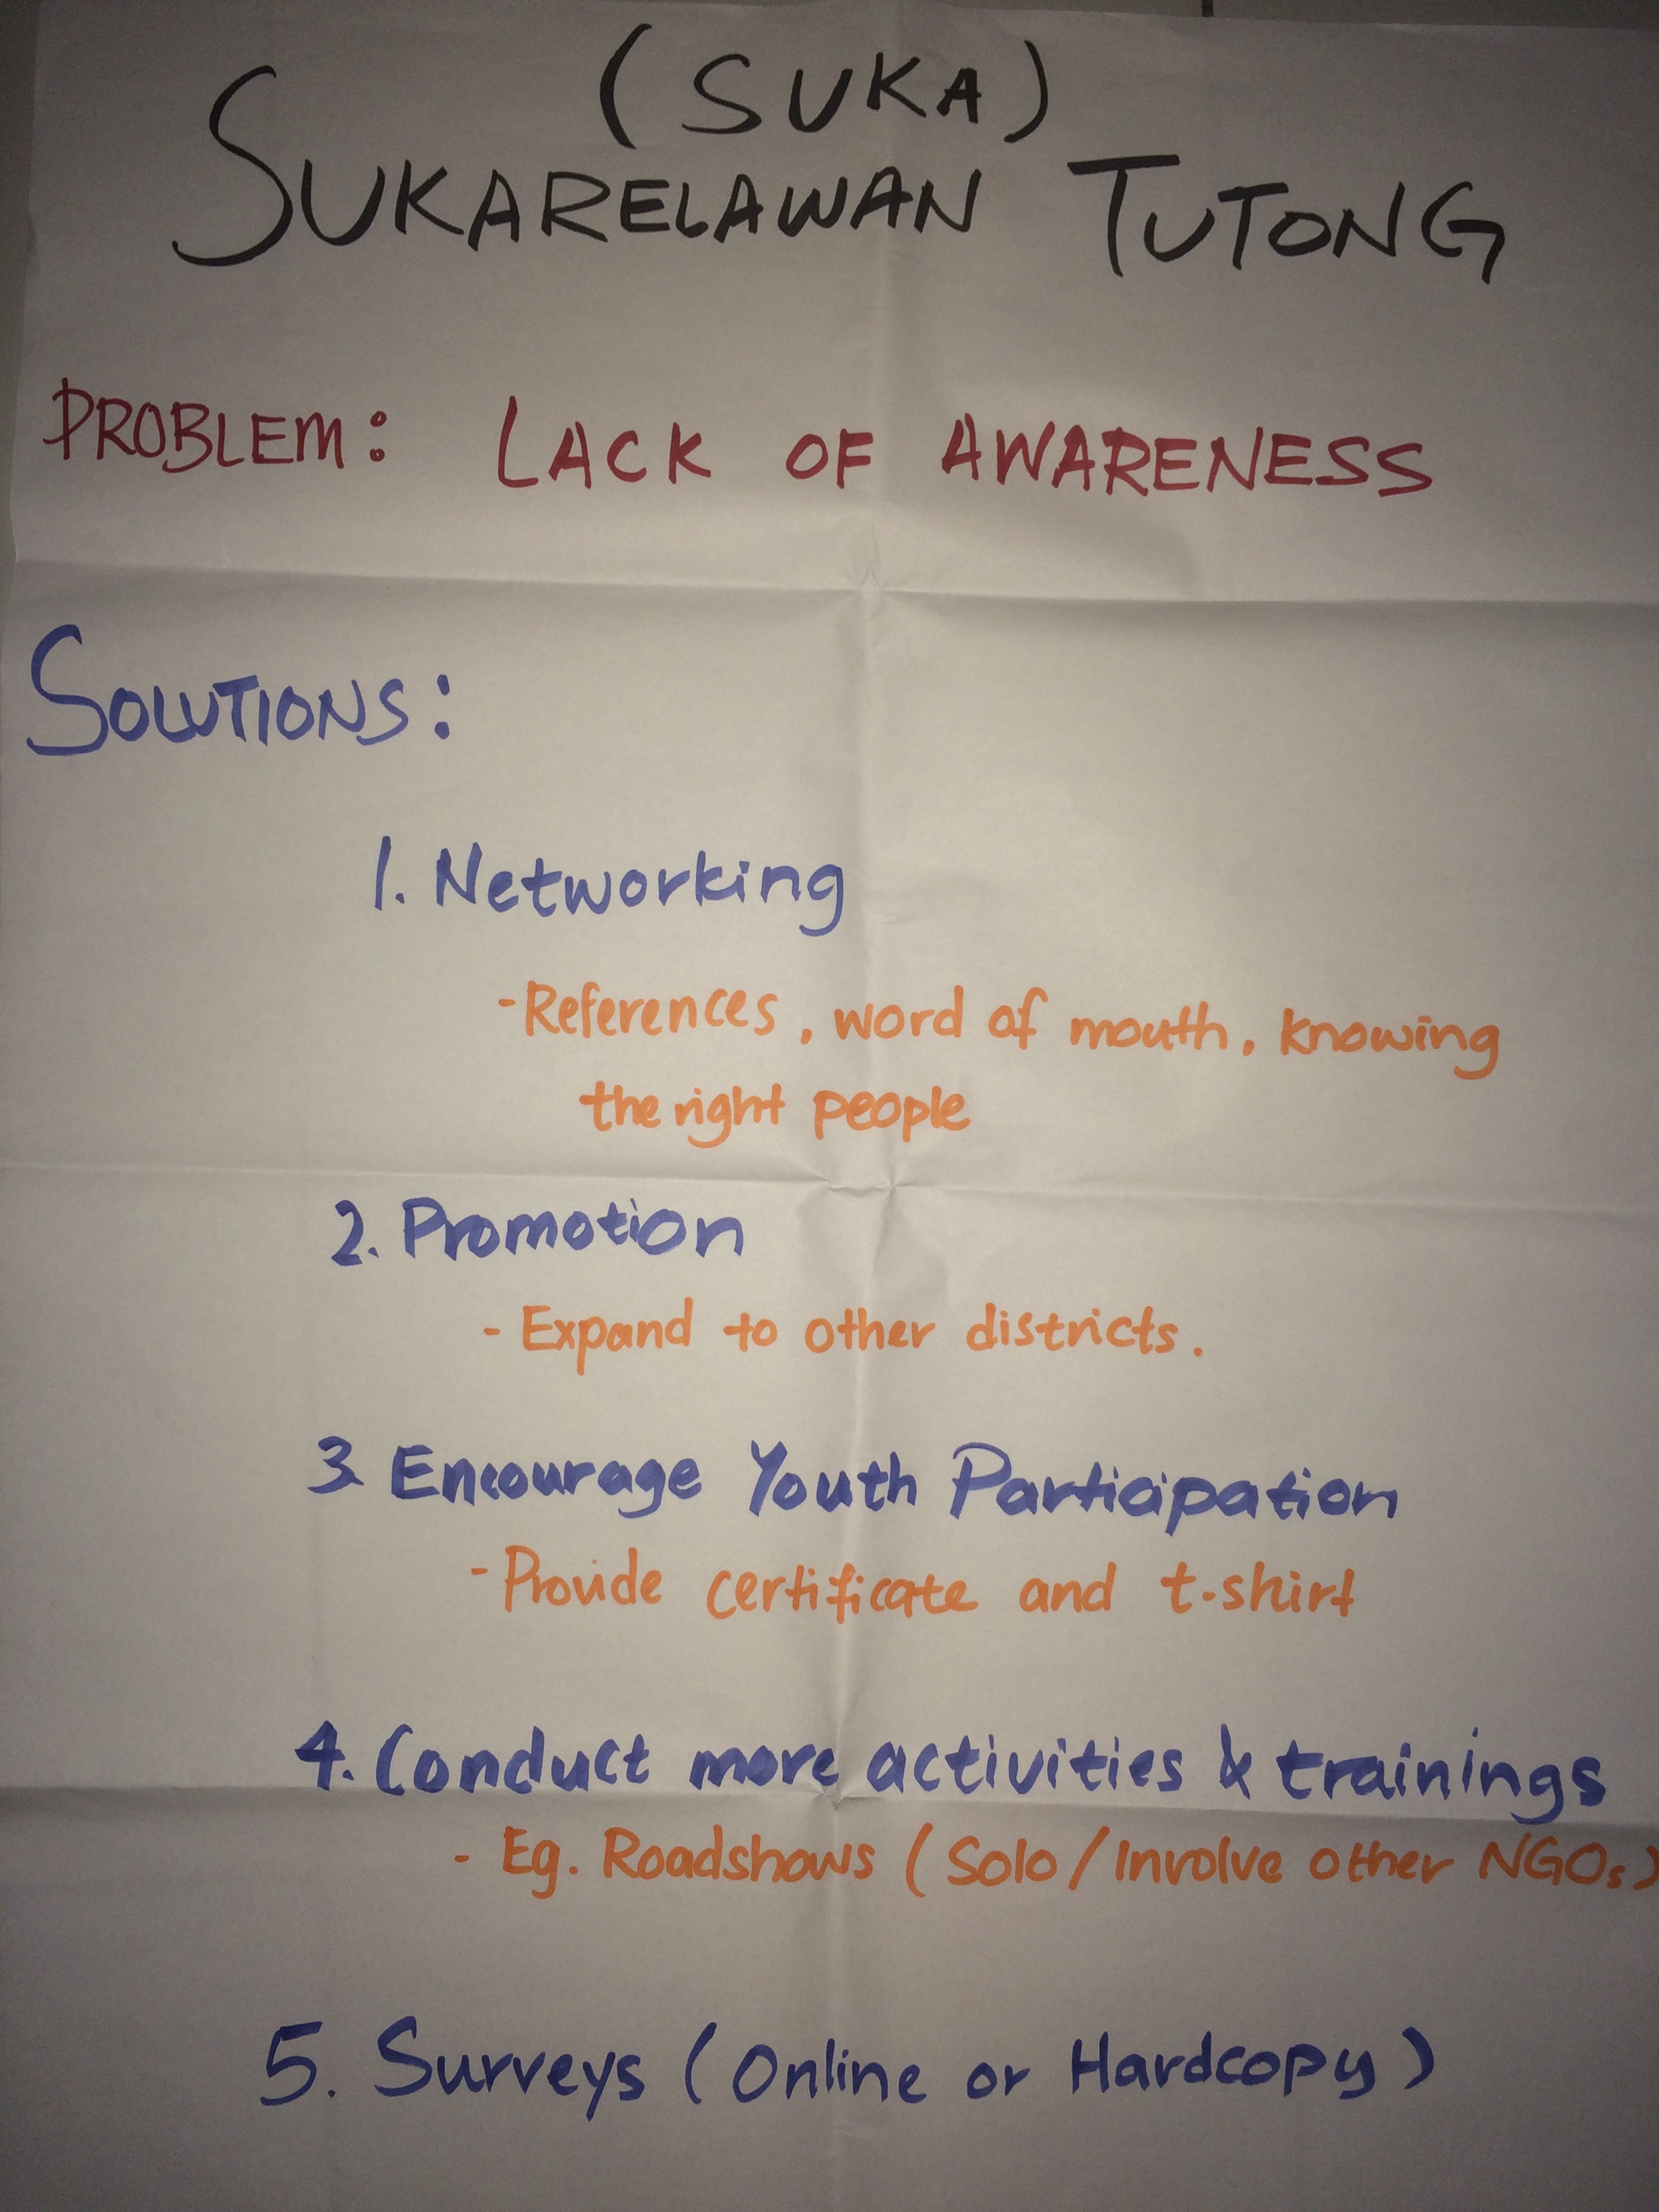 (SUKA)
SUKARELAWAN TUTONG
PROBLEM: LACK OF AWARENESS
SOLUTIONS:
1. Networking
- References, word of mouth, knowing
the right people
2. Promotion
- Expand to other districts.
3 Encourage Youth Participation
- Provide certificate and t-shirt
4. Conduct more activities & trainings
- Eg. Roadshows (Solo/Involve other NGOs)
5. Surveys (Online or Hardcopy)